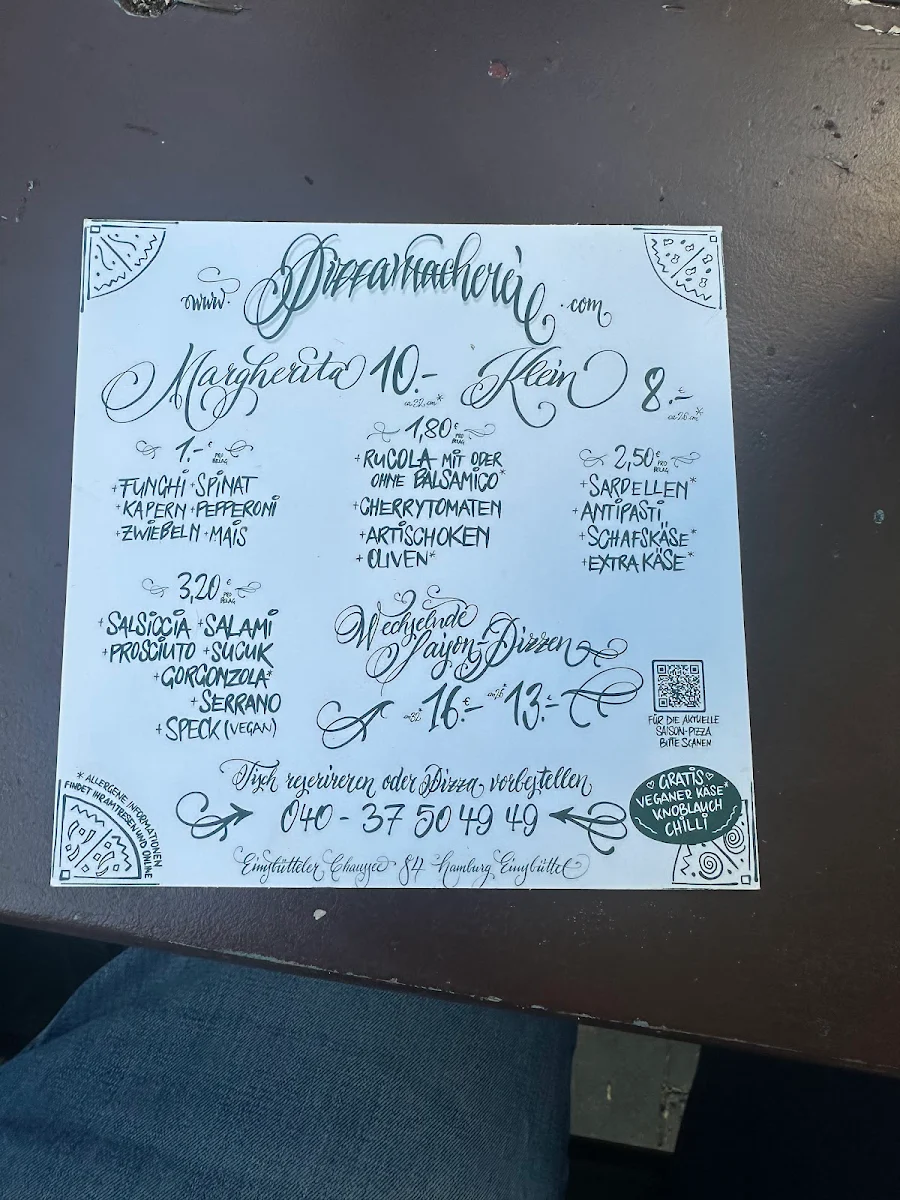 www. Pizzamacherei .com
Margherita 10.-
ca 32 cm*
Klein 8.-€
ca 26 cm*
1.-€ PRO BELAG
+FUNGHI +SPINAT
+KAPERN +PEPPERONI
+ZWIEBELN +MAIS
1,80€ PRO BELAG
+RUCOLA MIT ODER
OHNE BALSAMICO*
+CHERRYTOMATEN
+ARTISCHOKEN
+OLIVEN*
2,50€ PRO BELAG
+SARDELLEN*
+ANTIPASTI
+SCHAFSKÄSE*
+EXTRA KÄSE*
3,20€ PRO BELAG
+SALSICCIA +SALAMI
+PROSCIUTO +SUCUK
+GORGONZOLA*
+SERRANO
+SPECK (VEGAN)
Wechselnde
Saison-Pizzen
ca 32 16.-€ ca 26 13.-€
FÜR DIE AKTUELLE
SAISON-PIZZA
BITTE SCANEN
Tisch reserireren oder Pizza vorbestellen
040 - 37 50 49 49
Eimsbütteler Chaussee 84 Hamburg Eimsbüttel
* ALLERGENE INFORMATIONEN
FINDET IHR AM TRESEN UND ONLINE
GRATIS
VEGANER KÄSE*
KNOBLAUCH
CHILLI